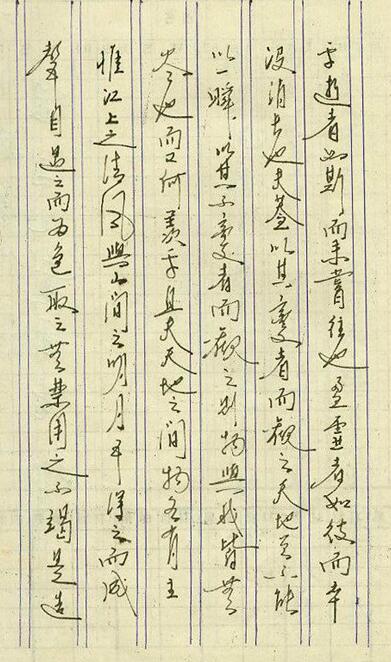 乎逝者如斯而未嘗往也盈虛者如彼而卒
没消长也夫蓋以其變者而觀之天地曾不能
以一瞬以其不變者而觀之則物與我皆無
尽也而又何羨乎且夫天地之間物各有主
惟江上之清風與山間之明月耳得之而成
聲目遇之而为色取之無禁用之不竭是造